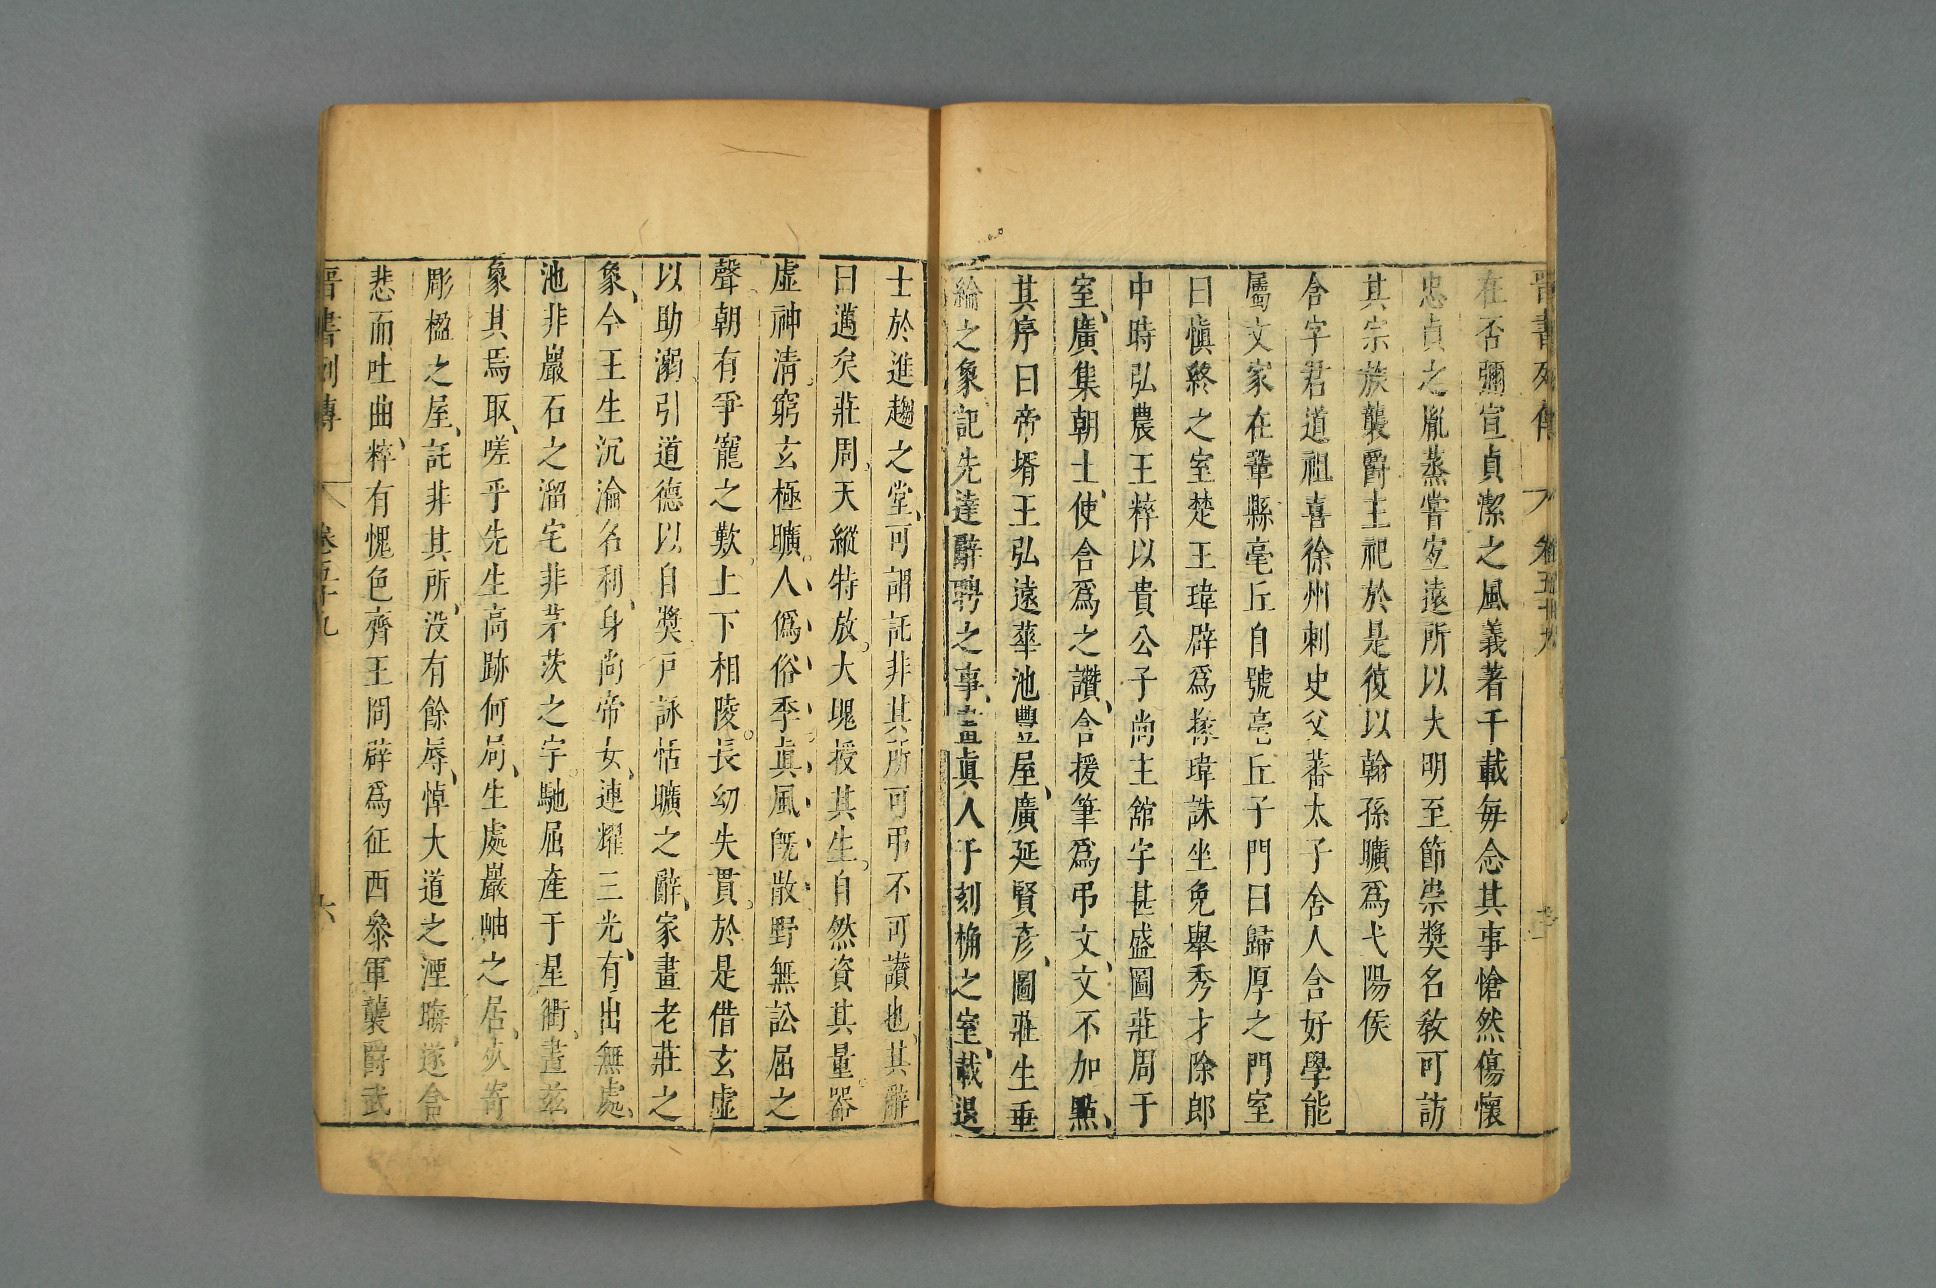 晉書列傳 卷五十九
在否彌宣貞潔之風義著千載每念其事愴然傷懷
忠貞之胤蒸嘗宜遠所以大明至節崇奬名教可訪
其宗族襲爵主祀於是復以翰孫曠爲弋陽侯
含字君道祖喜徐州刺史父蕃太子舍人含好學能
屬文家在鞏縣亳丘自號亳丘子門曰歸厚之門室
曰愼終之室楚王瑋辟爲掾瑋誅坐免舉秀才除郎
中時弘農王粹以貴公子尚主舘宇甚盛圖莊周于
室廣集朝士使含爲之讚含援筆爲弔文文不加點
其序曰帝壻王弘遠華池豐屋廣延賢彦圖莊生垂
綸之象記先達辭聘之事畫眞人于刻桷之室載退
士於進趨之堂可謂託非其所可弔不可讃也其辭
曰邁矣莊周天縱特放大塊授其生自然資其量器
虛神清窮玄極曠人僞俗季眞風旣散野無訟屈之
聲朝有爭寵之歎上下相陵長幼失貫於是借玄虛
以助溺引道德以自奬戸詠恬曠之辭家畫老莊之
象今王生沉淪名利身尚帝女連耀三光有出無處
池非巖石之溜宅非茅茨之宇馳屈產于皇衢畫茲
象其焉取嗟乎先生高跡何局生處巖岫之居死寄
彫楹之屋託非其所没有餘辱悼大道之湮晦遂含
悲而吐曲粹有愧色齊王冏辟爲征西參軍襲爵武
晉書列傳 卷五十九 六